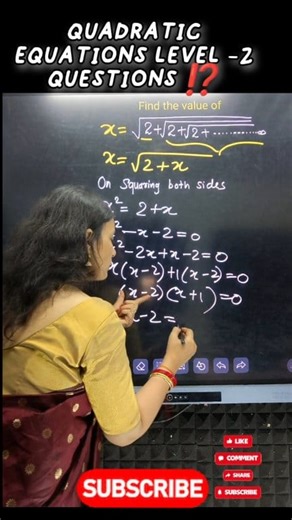 QUADRATIC
EQUATIONS LEVEL -2
QUESTIONS ⁉️
Find the value of
x = √2+√2+√2+ ..............∞
x = √2+x
On Squaring both sides
x² = 2+x
² - x - 2 = 0
² - 2x + x - 2 = 0
x(x-2)+1(x-2)=0
(x-2)(x+1)=0
x-2 =
LIKE
COMMENT
SHARE
SUBSCRIBE
SUBSCRIBE